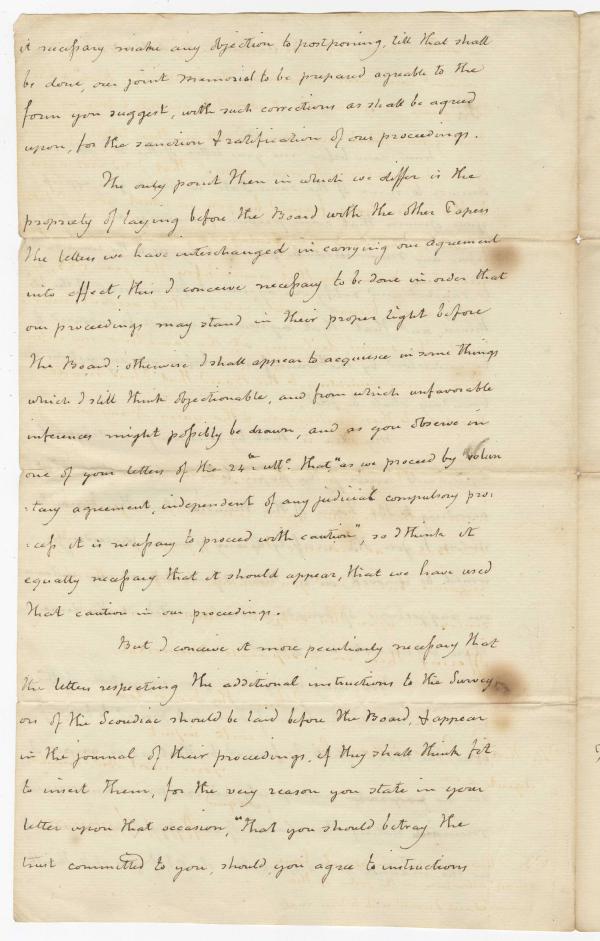 it necessary make any objection to postponing, till that shall
be done, our joint memorial to be prepared agreable to the
form you suggest, with such corrections as shall be agreed
upon, for the sanction & ratification of our proceedings.
The only point then in which we differ is the
propriety of laying before the Board with the other Papers
the letters we have interchanged in carrying our agreement
into effect, this I conceive necessary to be done in order that
our proceedings may stand in their proper light before
the Board: otherwise I shall appear to acquiesce in some things
which I still think objectionable, and from which unfavorable
inferences might possibly be drawn, and as you observe in
one of your letters of the 24th ulto. that "as we proceed by volun
:tary agreement, independent of any judicial compulsory pro:
:cess it is necessary to proceed with caution", so I think it
equally necessary that it should appear, that we have used
that caution in our proceedings.
But I conceive it more peculiarly necessary that
the letters respecting the additional instructions to the Survey
ors of the Scoudiac should be laid before the Board, & appear
in the journal of their proceedings, if they shall think fit
to insert them, for the very reason you state in your
letter upon that occasion, "that you should betray the
trust committed to you, should you agree to instructions